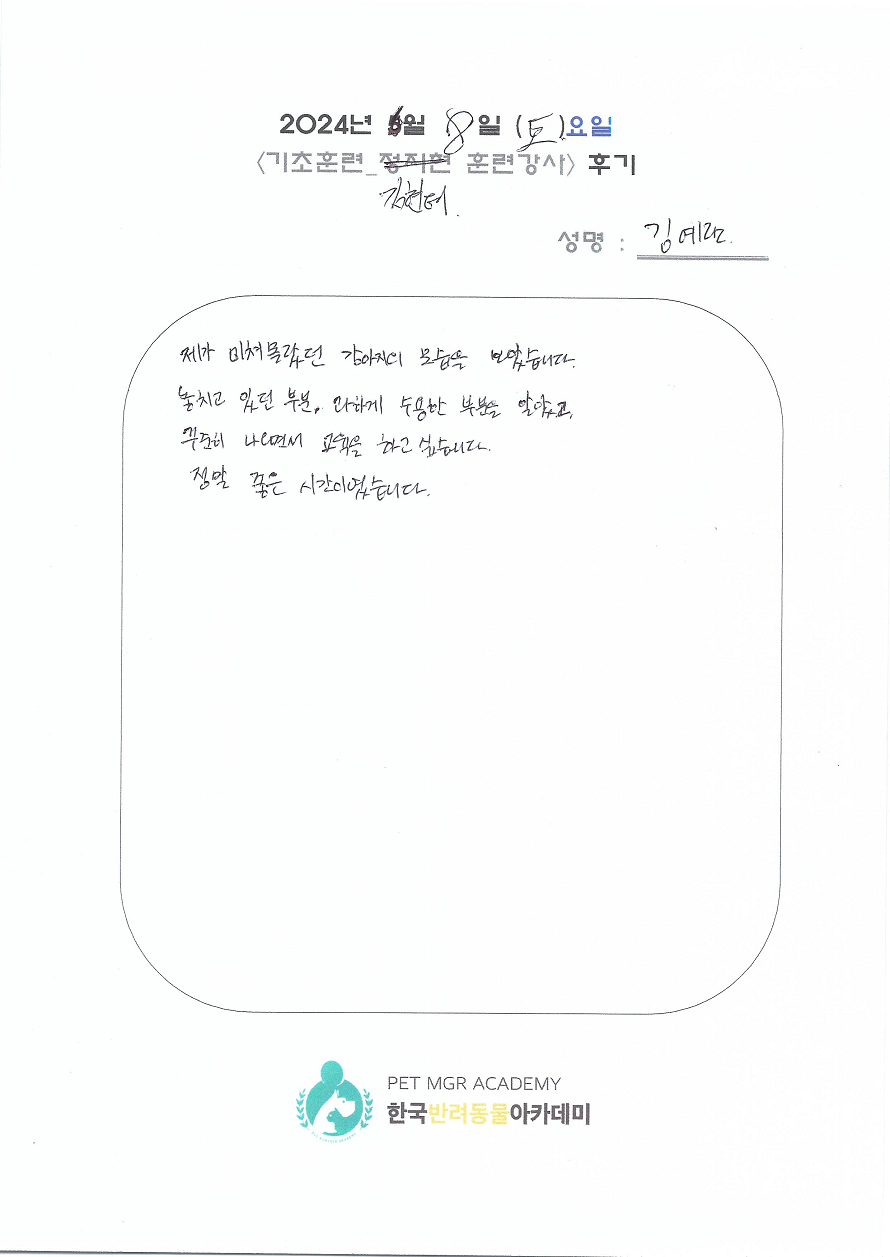 2024년 6월 8일 (토)요일
〈기초훈련_정지현 훈련강사〉 후기
김현태
성명 : 김예란
제가 미쳐몰랐던 강아지의 모습을 보았습니다.
놓치고 있던 부분, 과하게 수용한 부분을 알았고,
꾸준히 나오면서 교육을 하고싶습니다.
정말 좋은 시간이였습니다.
PET MGR ACADEMY
한국반려동물아카데미